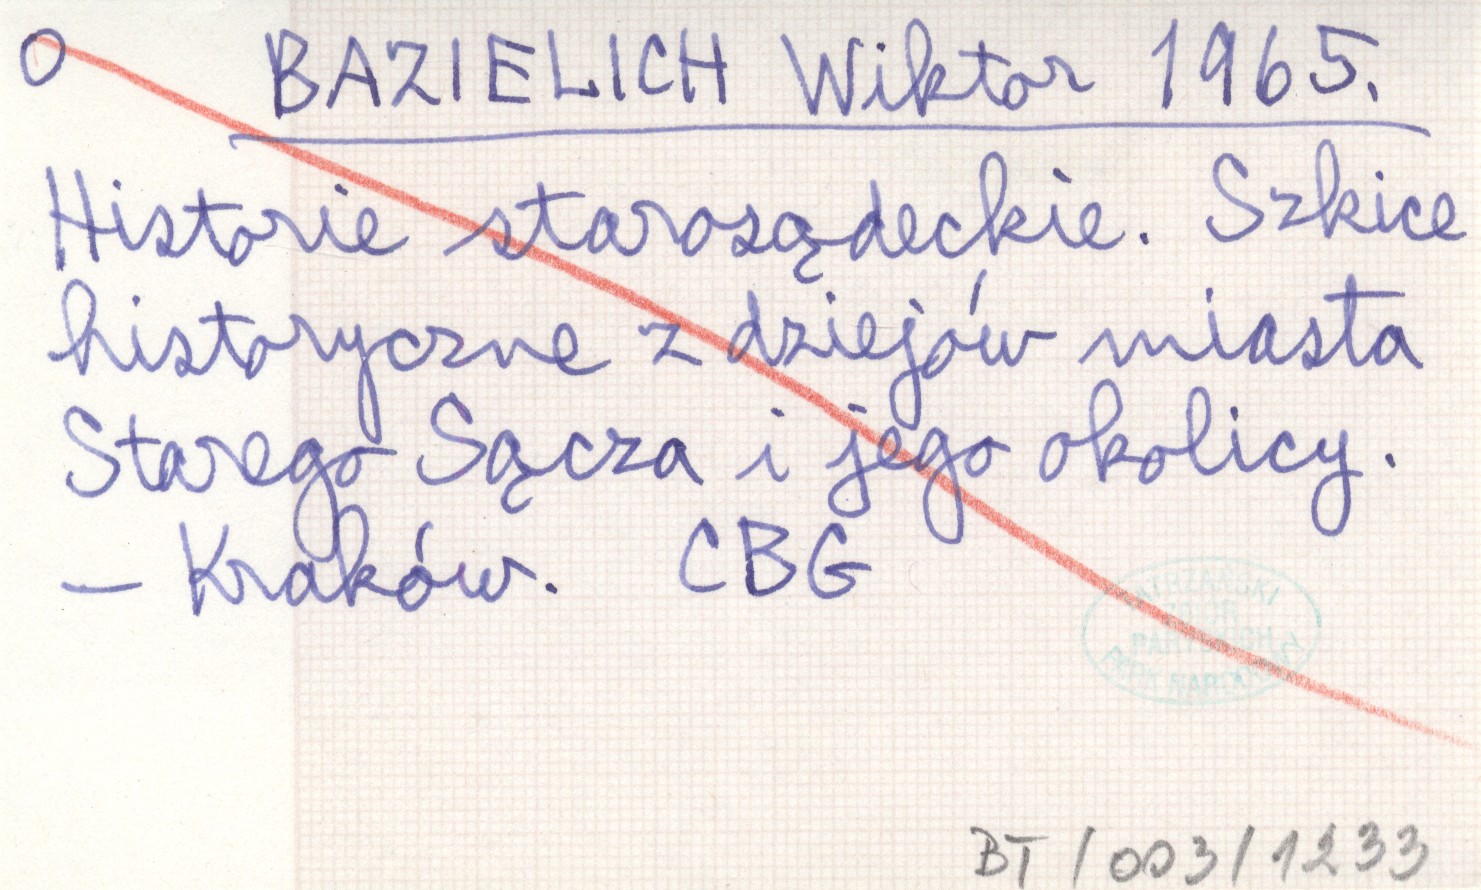 O BAZIELICH Wiktor 1965.
Historie starosądeckie. Szkice
historyczne z dziejów miasta
Starego Sącza i jego okolicy.
– Kraków. CBG
TATRZAŃSKI
PARK NARODOWY
BT/003/1233